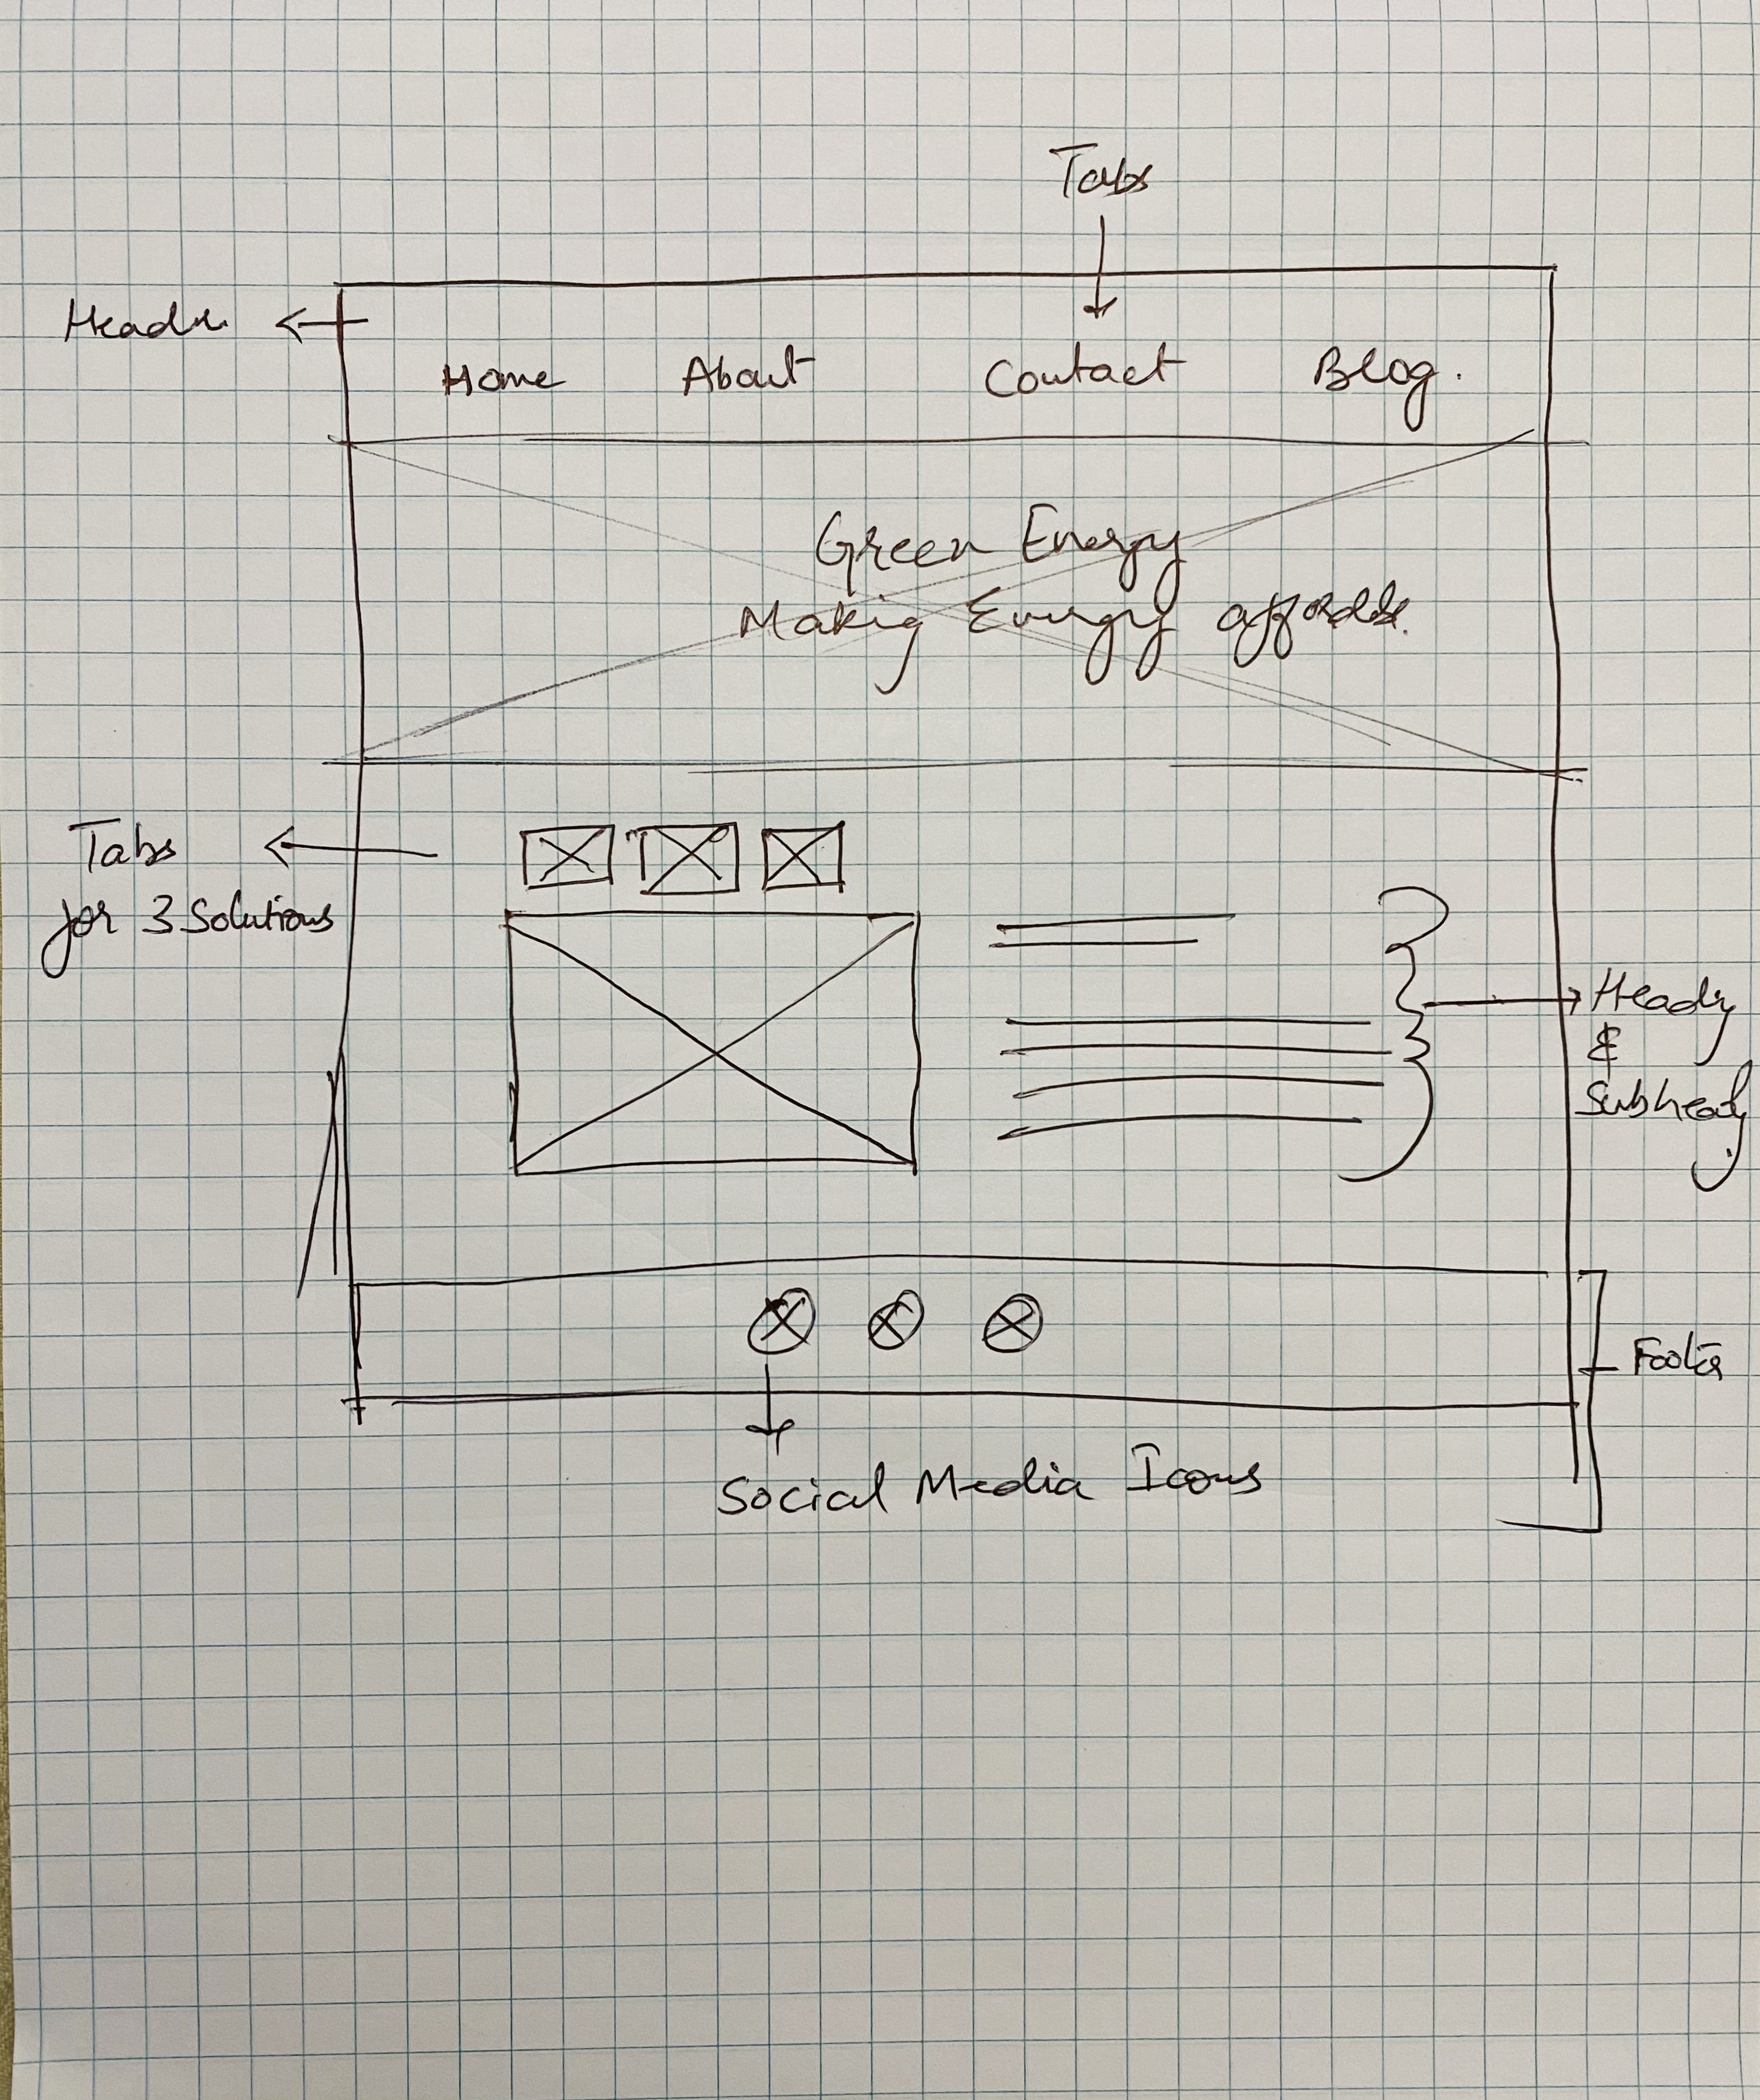 Tabs
Header
Home About Contact Blog.
Green Energy
Making Energy
Tabs
for 3 Solutions
Heading
&
Subheading
Footer
Social Media Icons